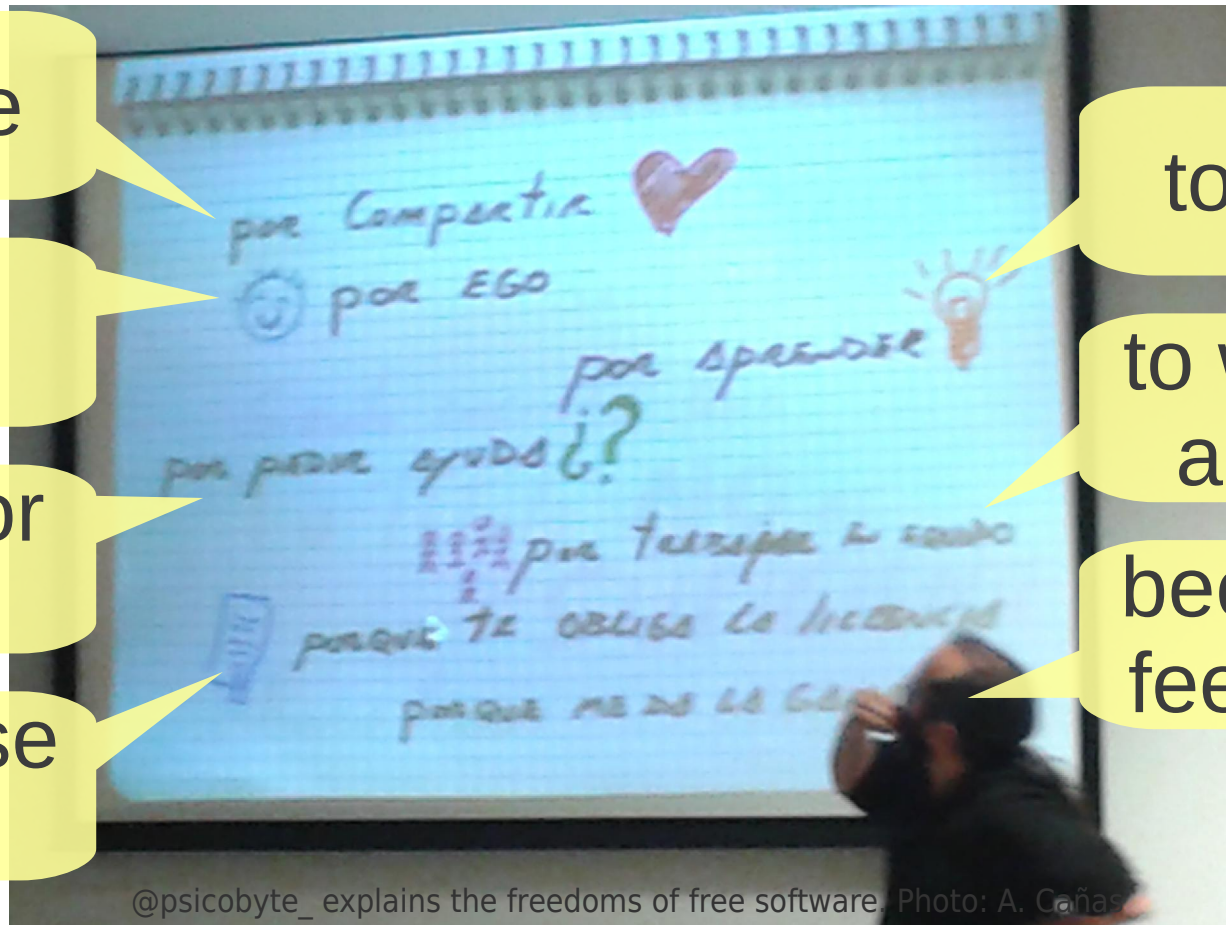 e
por Compartir
to
por EGO
por aprender
to
a
por pedir ayuda ¿?
or
por trabajar en equipo
porque te obliga la licencia
bec
fee
porque me da la ga
se
@psicobyte_ explains the freedoms of free software. Photo: A. Cañas